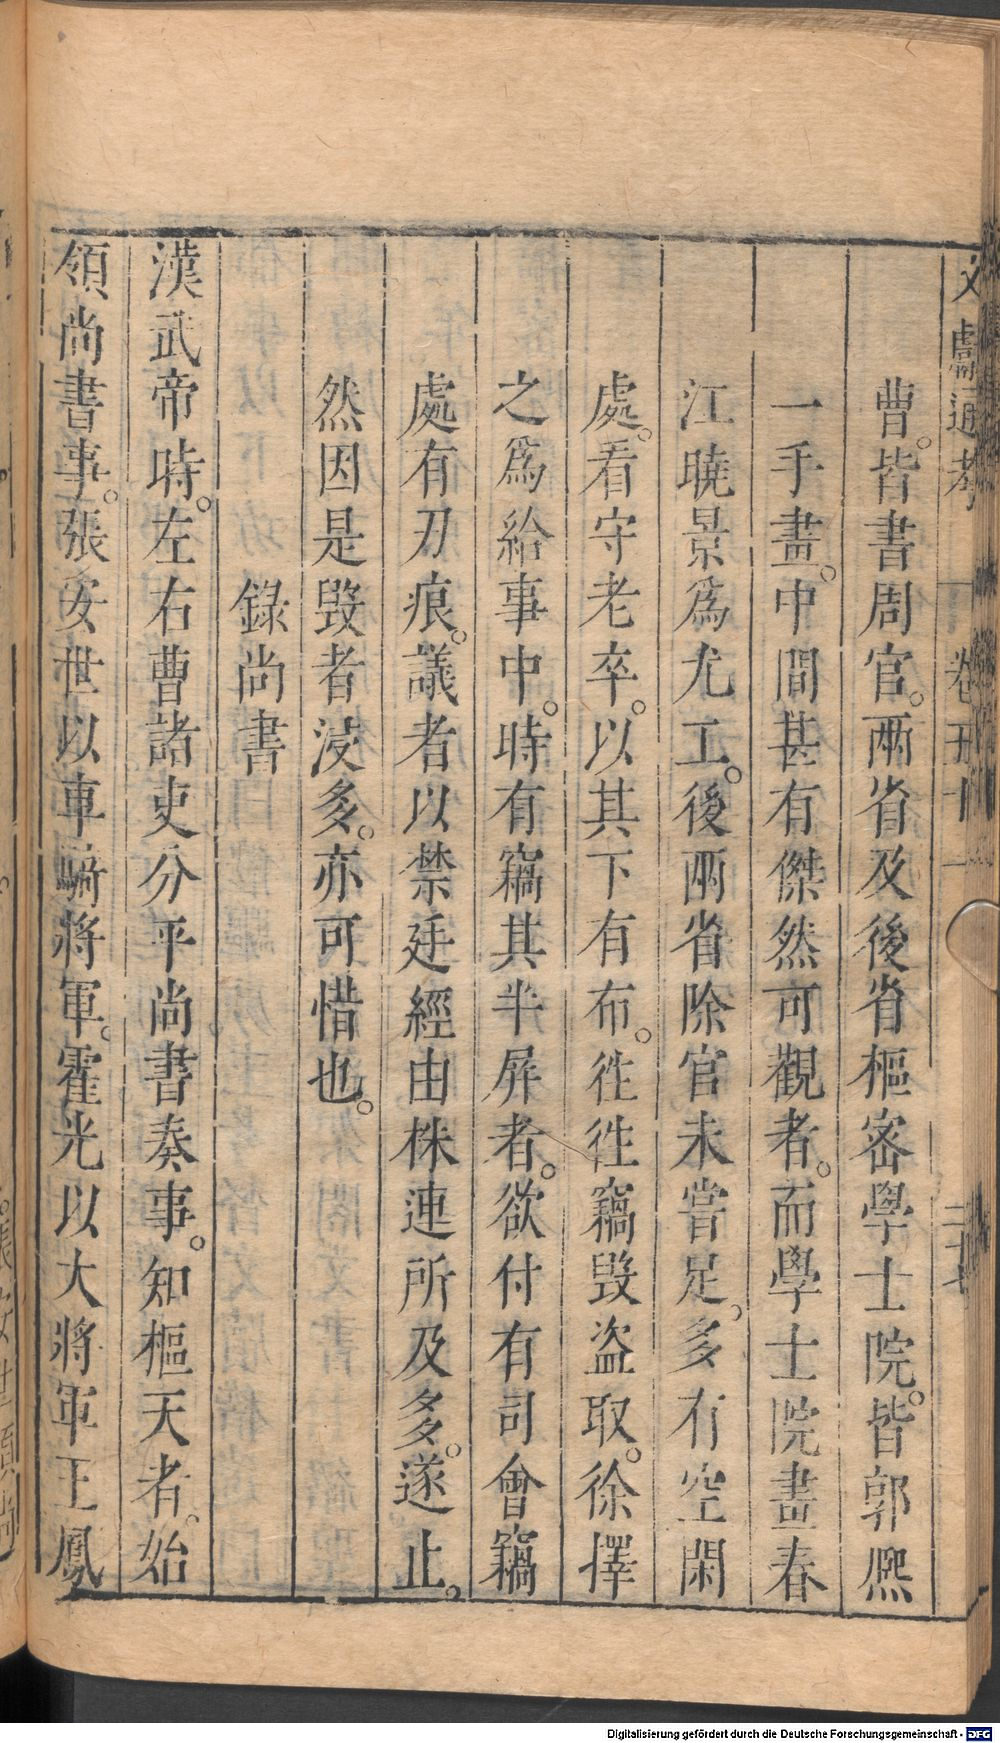 文獻通考 卷五十一 二十七
曹。皆書周官。兩省及後省樞密學士院。皆郭熈
一手畫。中間甚有傑然可觀者。而學士院畫春
江曉景爲尤工。後兩省除官未嘗足。多有空閑
處。看守老卒。以其下有布。徃徃竊毀盜取。徐擇
之爲給事中。時有竊其半屏者。欲付有司會竊
處有刃痕。議者以禁廷經由株連所及多。遂止。
然因是毀者浸多。亦可惜也。
錄尚書
漢武帝時。左右曹諸吏分平尚書奏事。知樞天者。始
領尚書事。張安世以車騎將軍。霍光以大將軍王鳳
Digitalisierung gefördert durch die Deutsche Forschungsgemeinschaft - DFG